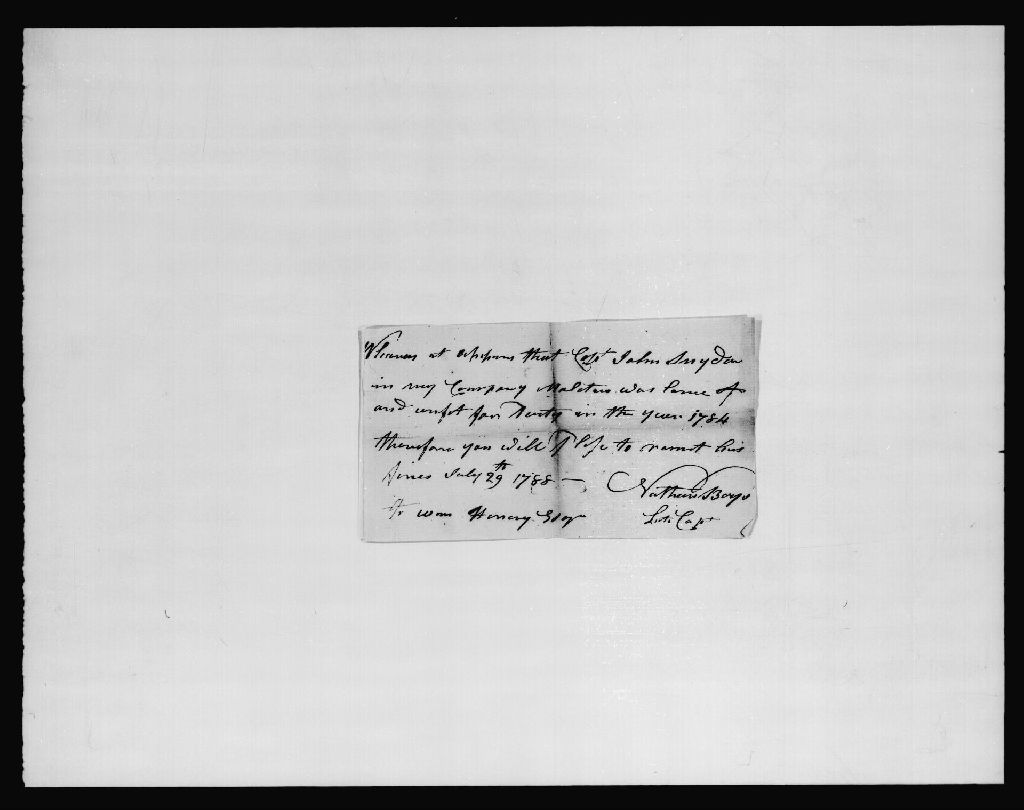 Whereas it appears that Capt John Snyder
in my Company Malitia was lame of
and unfit for Duty in the year 1784
therefore you will Please to remit his
fines July 29th 1788 —
Nathan Boys
Late Capt
To Wm Henery Esqr